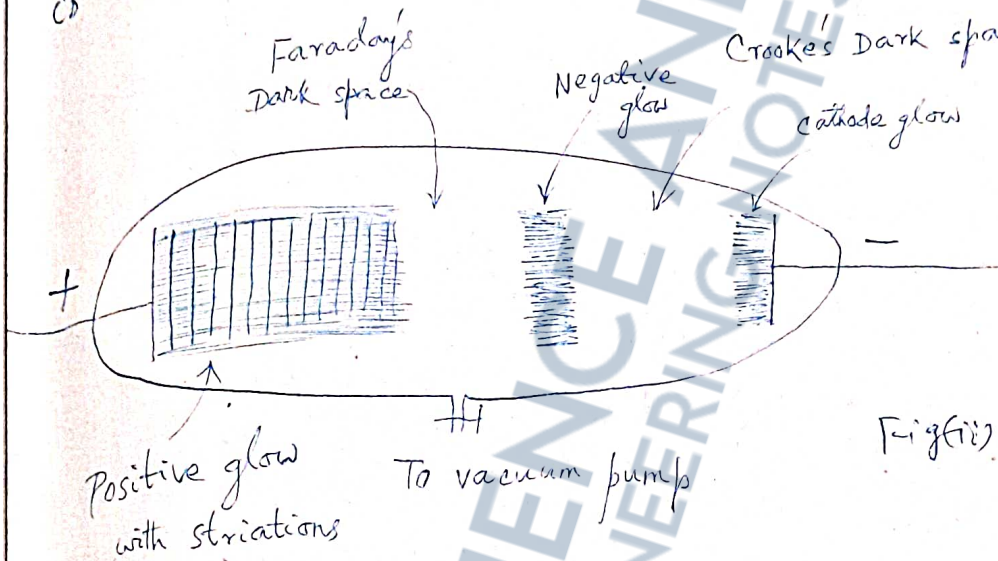 Faraday's
Dark space
Negative
glow
Crooke's Dark spa
Cathode glow
+
−
Positive glow
with striations
To vacuum pump
Fig(ii)
ENCE AN
NEERING NOTES